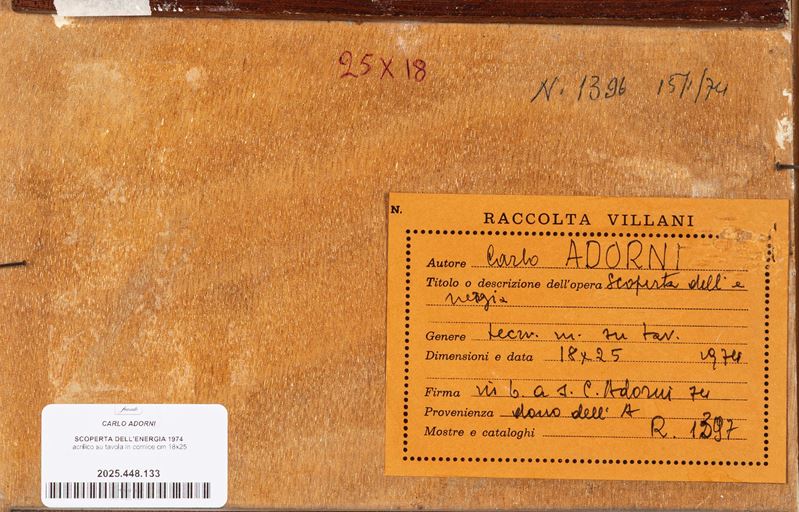 25 X 18
N. 1396 15/1/74
N.
RACCOLTA VILLANI
Autore Carlo ADORNI
Titolo o descrizione dell'opera Scoperta dell'e
nergia
Genere tecn. m. su tav.
Dimensioni e data 18x25 1974
Firma in b. a s. C. Adorni 74
Provenienza dono dell'A
Mostre e cataloghi R. 1397
CARLO ADORNI
SCOPERTA DELL'ENERGIA 1974
acrilico su tavola in cornice cm 18x25
2025.448.133